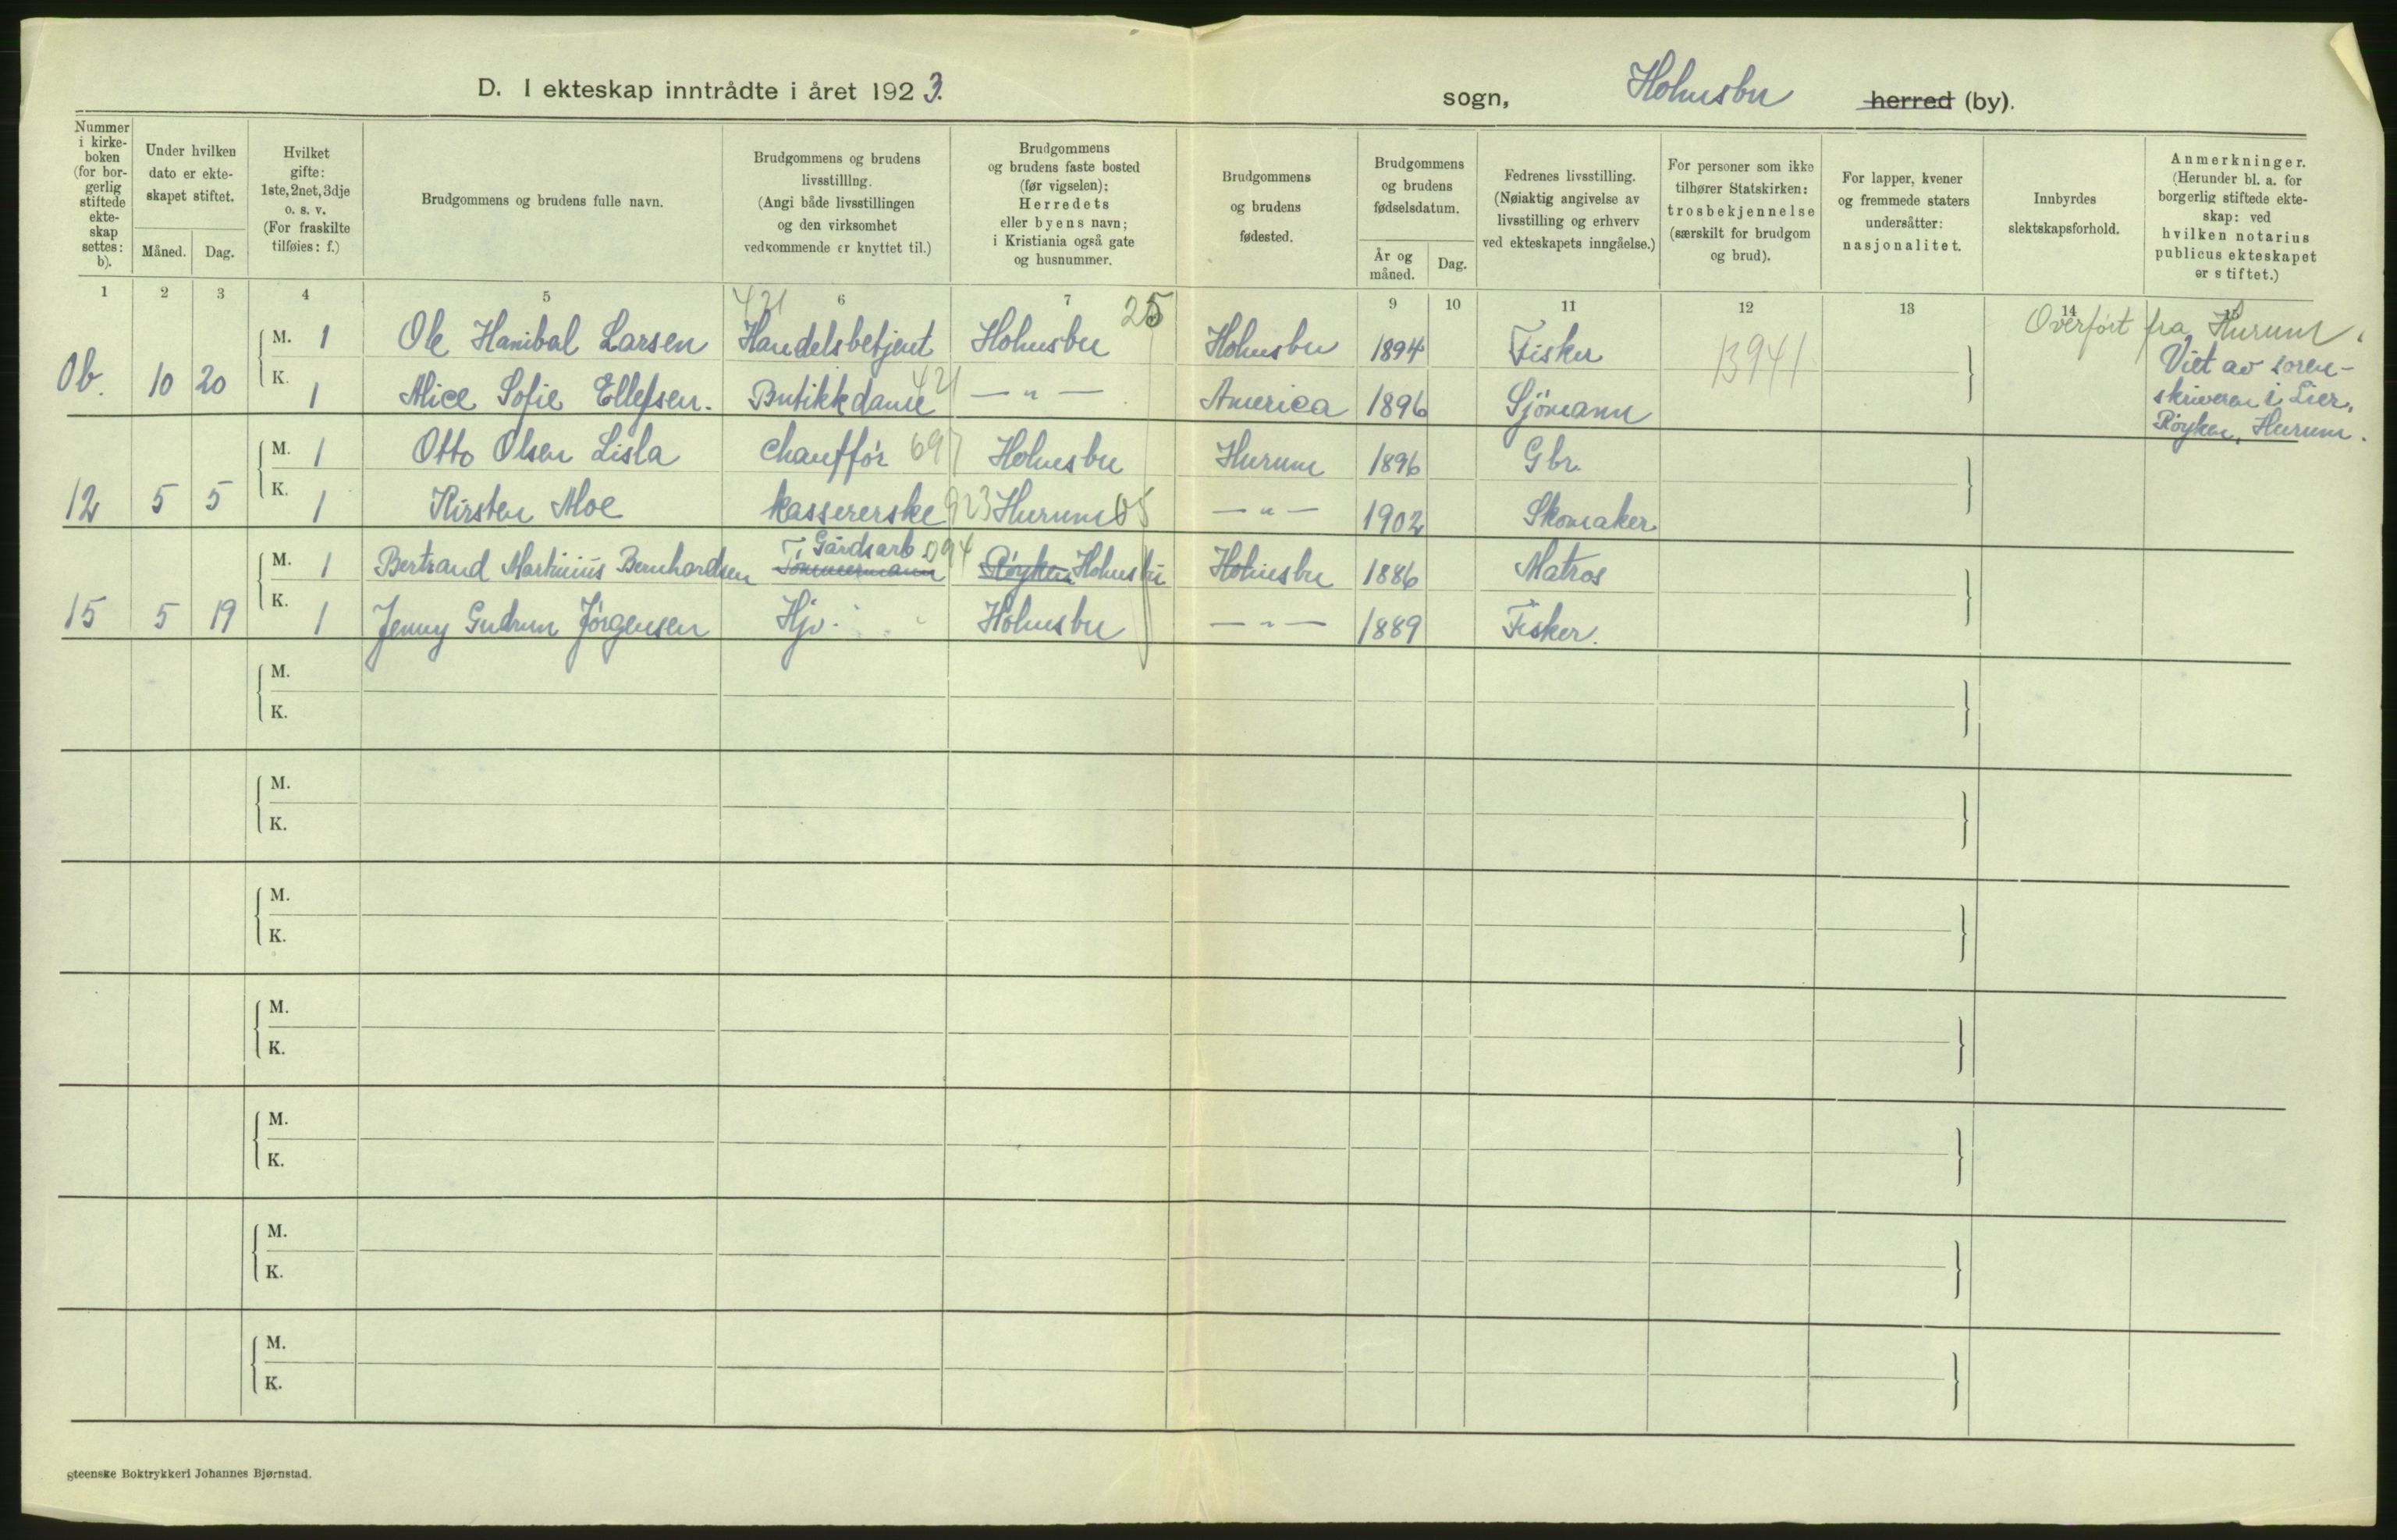 D. I ekteskap inntrådte i året 1923.
sogn, Holmsbu herred (by).
Nummer i kirkeboken (for borgerlig stiftede ekteskap settes: b).
Under hvilken dato er ekteskapet stiftet.
Måned. Dag.
Hvilket gifte: 1ste, 2net, 3dje o. s. v. (For fraskilte tilføies: f.)
Brudgommens og brudens fulle navn.
Brudgommens og brudens livsstilling. (Angi både livsstillingen og den virksomhet vedkommende er knyttet til.)
Brudgommens og brudens faste bosted (før vigselen); Herredets eller byens navn; i Kristiania også gate og husnummer.
Brudgommens og brudens fødested.
Brudgommens og brudens fødselsdatum.
År og måned. Dag.
Fedrenes livsstilling. (Nøiaktig angivelse av livsstilling og erhverv ved ekteskapets inngåelse.)
For personer som ikke tilhører Statskirken: trosbekjennelse (særskilt for brudgom og brud).
For lapper, kvener og fremmede staters undersåtter: nasjonalitet.
Innbyrdes slektskapsforhold.
Anmerkninger. (Herunder bl. a. for borgerlig stiftede ekteskap: ved hvilken notarius publicus ekteskapet er stiftet.)
1 2 3 4 5 6 7 9 10 11 12 13 14
421 25 Overført fra Hurum.
M. 1 Ole Hanibal Larsen Handelsbetjent Holmsbu Holmsbu 1894 Fisker 13941
Ob. 10 20 K. 1 Alice Sofie Ellefsen. Butikkdame 421 — " — America 1896 Sjömann
Viet av soren-
skriveren i Lier,
Røyken, Hurum.
M. 1 Otto Olsen Lisla chauffør 697 Holmsbu Hurum 1896 Gbr.
12 5 5 K. 1 Kirsten Moe kassererske 923 Hurum 05 — " — 1902 Skomaker
M. 1 Bertrand Martinius Bernhardsen Tømmermann Gårdsarb. 094 Røyken Holmsbu Holmsbu 1886 Matros
15 5 19 K. 1 Jenny Gudrun Jørgensen Hjv. Holmsbu — " — 1889 Fisker.
M.
K.
M.
K.
M.
K.
M.
K.
M.
K.
M.
K.
M.
K.
steenske Boktrykkeri Johannes Bjørnstad.